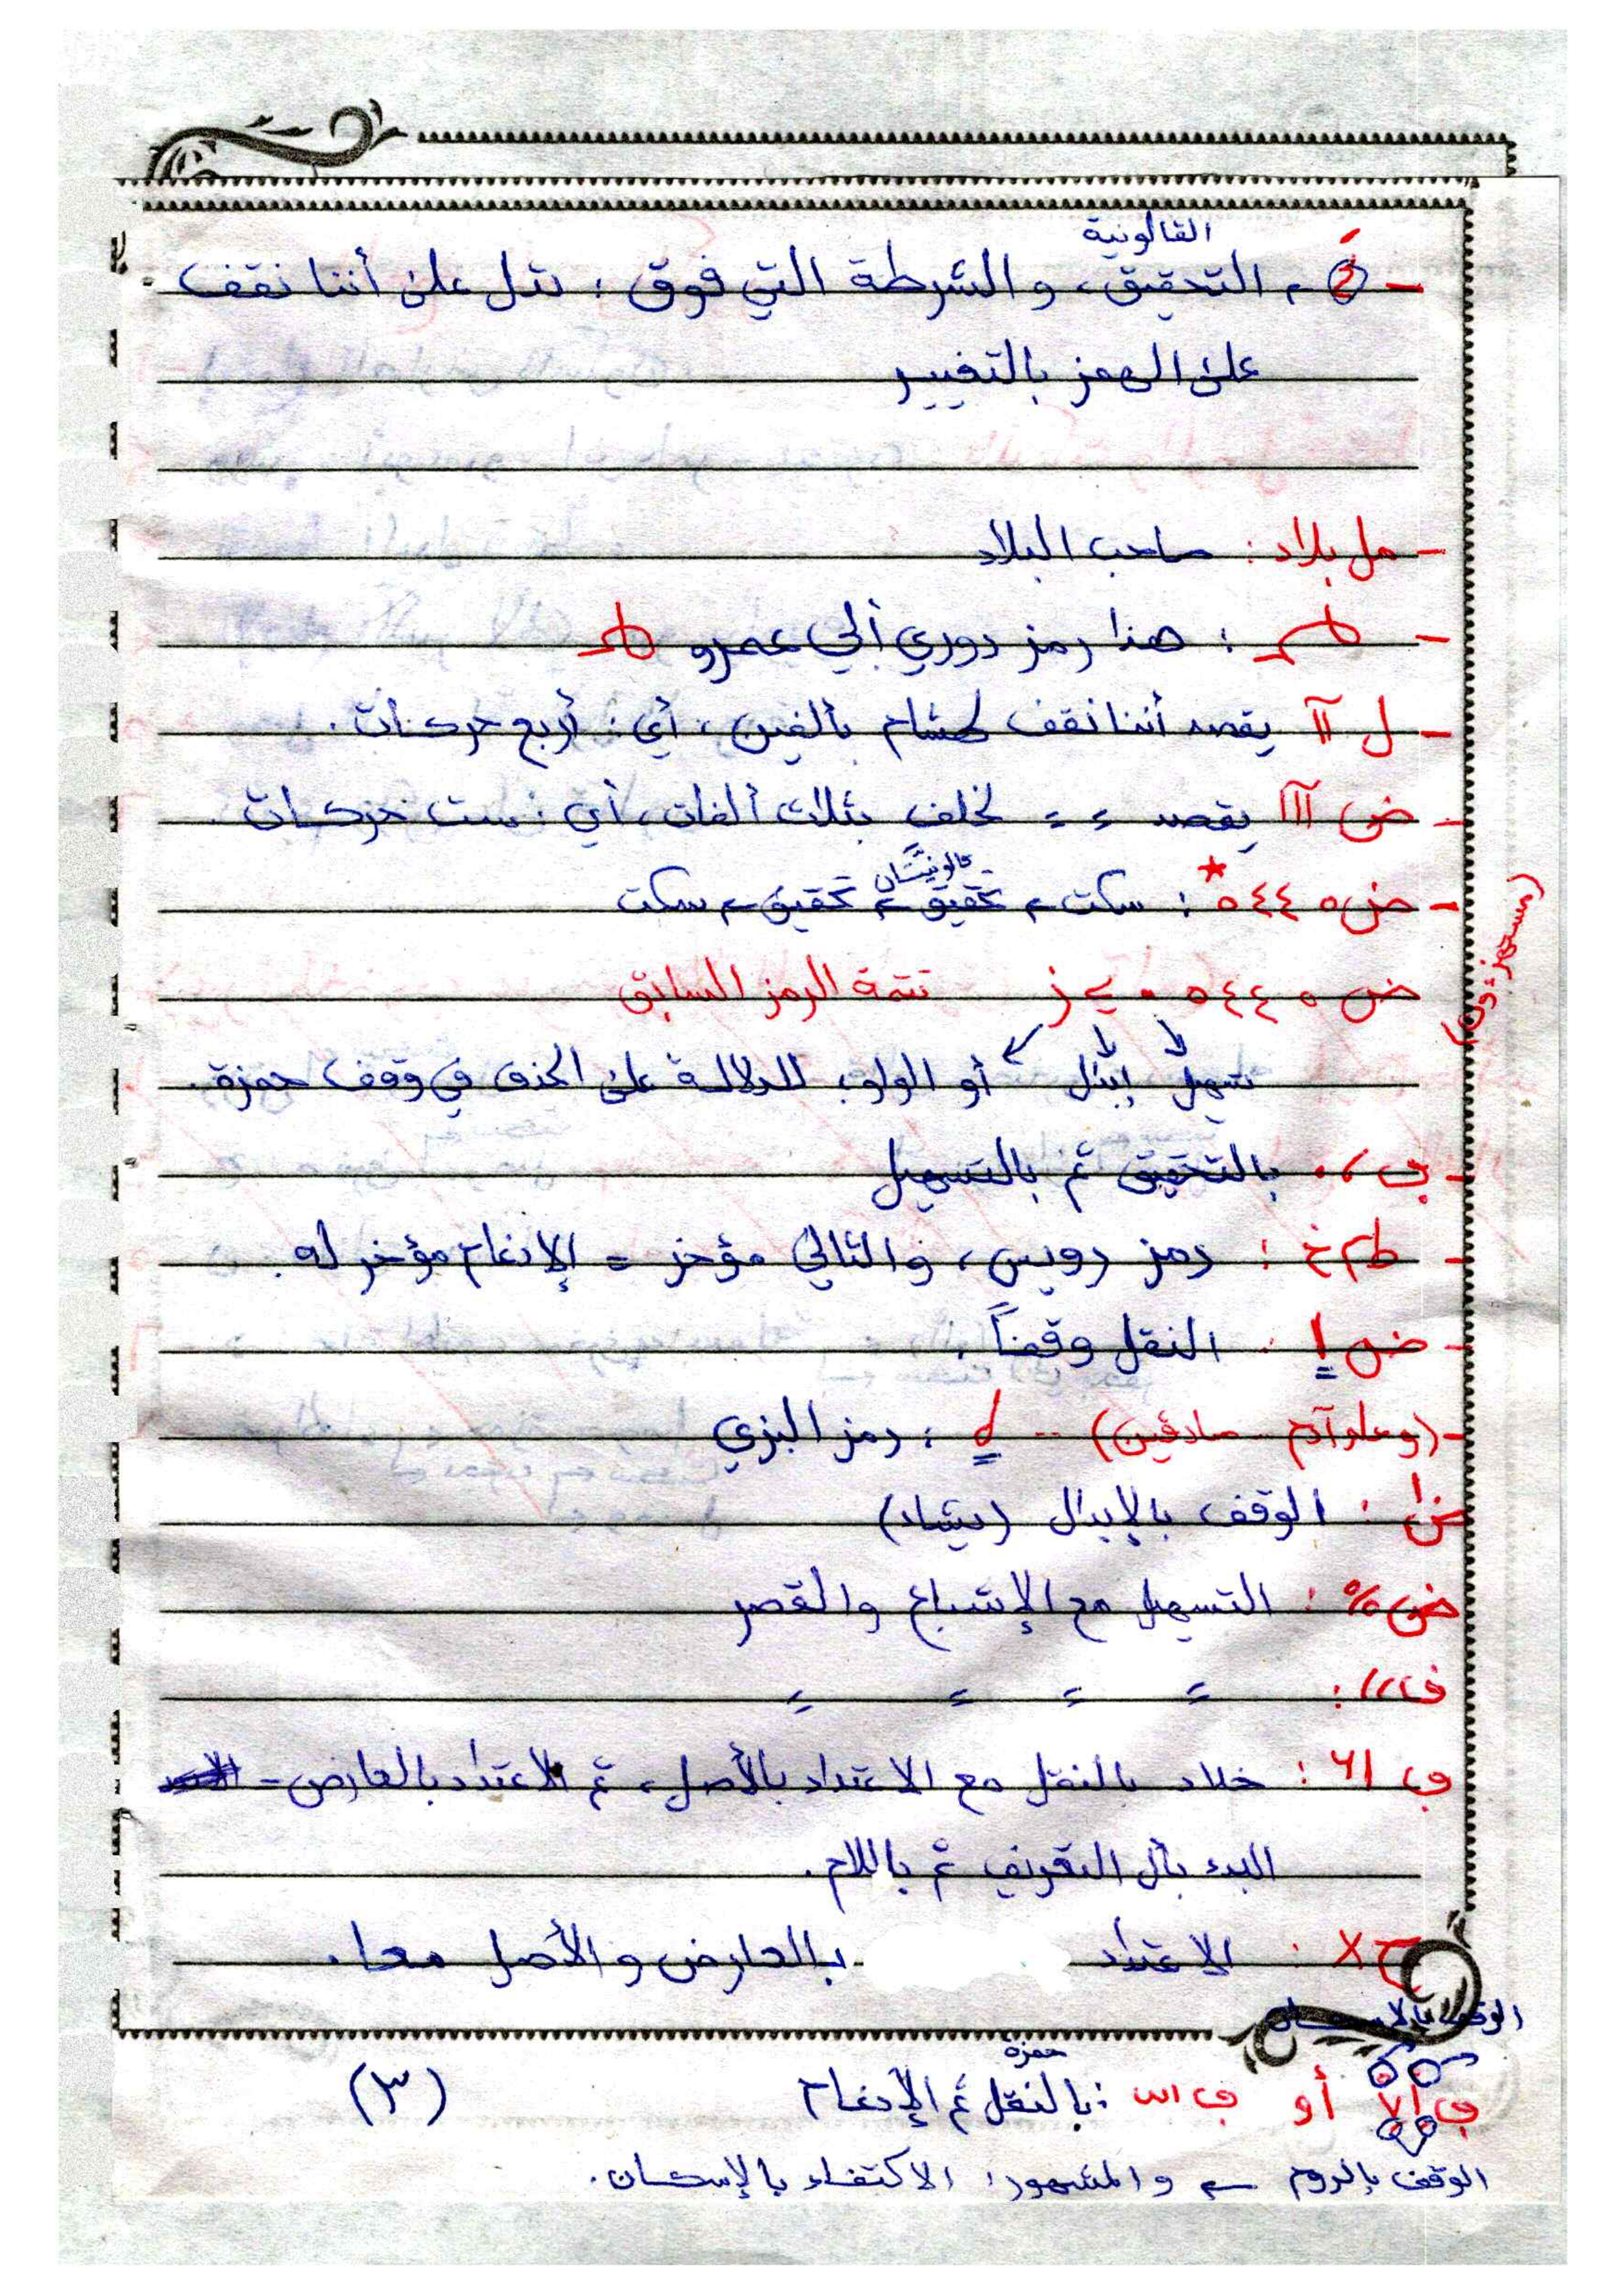 القالونية
- ء = التحقيق، والشرطة التي فوق: تدل على أننا نقف
على الهمز بالتغيير
- مل بلاد : صاحب البلاد
- ط : هذا رمز دوري أبي عمرو ط
- ل اا يقصد أننا نقف لهشام بألفين، أي: أربع حركات.
- ض ااا يقصد = = لخلف بثلاث ألفات، أي: ست حركات.
قالونيتان
- ض ه ٤٤ ه * : سكت تحقيق تحقيق سكت
(مستهزئون)
ض ه ٤٤ ه تتمة الرمز السابق
تسهيل إبدال أو الواو: للدلالة على الحذف في وقف حمزة.
بالتحقيق ثم بالتسهيل
- : رمز رويس، والتالي مؤخر = الإدغام مؤخر له.
- ض ! : النقل وقفاً.
- (وعلم آدم .. صادقين) .. ه : رمز البزي
ض ا : الوقف بالإبدال (يشاء)
ض % : التسهيل مع الإشباع والقصر
ف // : = = = =
ق ٦١ : خلاد بالنقل مع الاعتداد بالأصل، ثم الاعتداد بالعارض =
البدء بأل التعريف ثم باللام.
ح X : الاعتداد بالعارض والأصل معا.
الوقف بالإسكان
حمزة
أو : بالنقل ثم الإدغام (٣)
الوقف بالروم والمشهور: الاكتفاء بالإسكان.